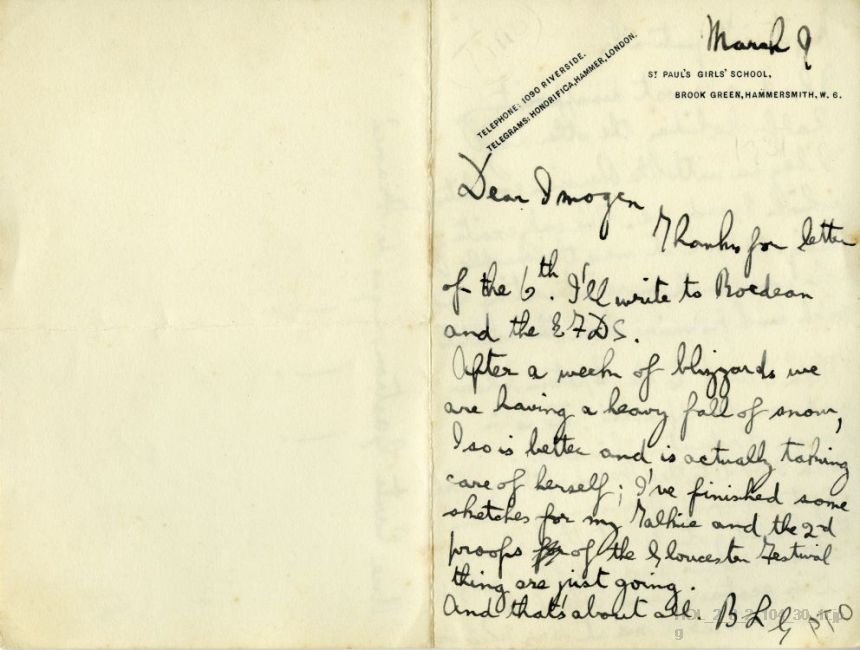 March 9
TELEPHONE: 1090 RIVERSIDE.
TELEGRAMS: HONORIFICA, HAMMER, LONDON.
ST PAUL'S GIRLS' SCHOOL,
BROOK GREEN, HAMMERSMITH, W. 6.
Dear Imogen
Thanks for letter
of the 6th. I'll write to Roedean
and the EFDS.
After a week of blizzards we
are having a heavy fall of snow,
Iso is better and is actually taking
care of herself; I've finished some
sketches for my Talkie and the 2nd
proofs of the Gloucester Festival
thing are just going.
And that's about all. B L G
PTO